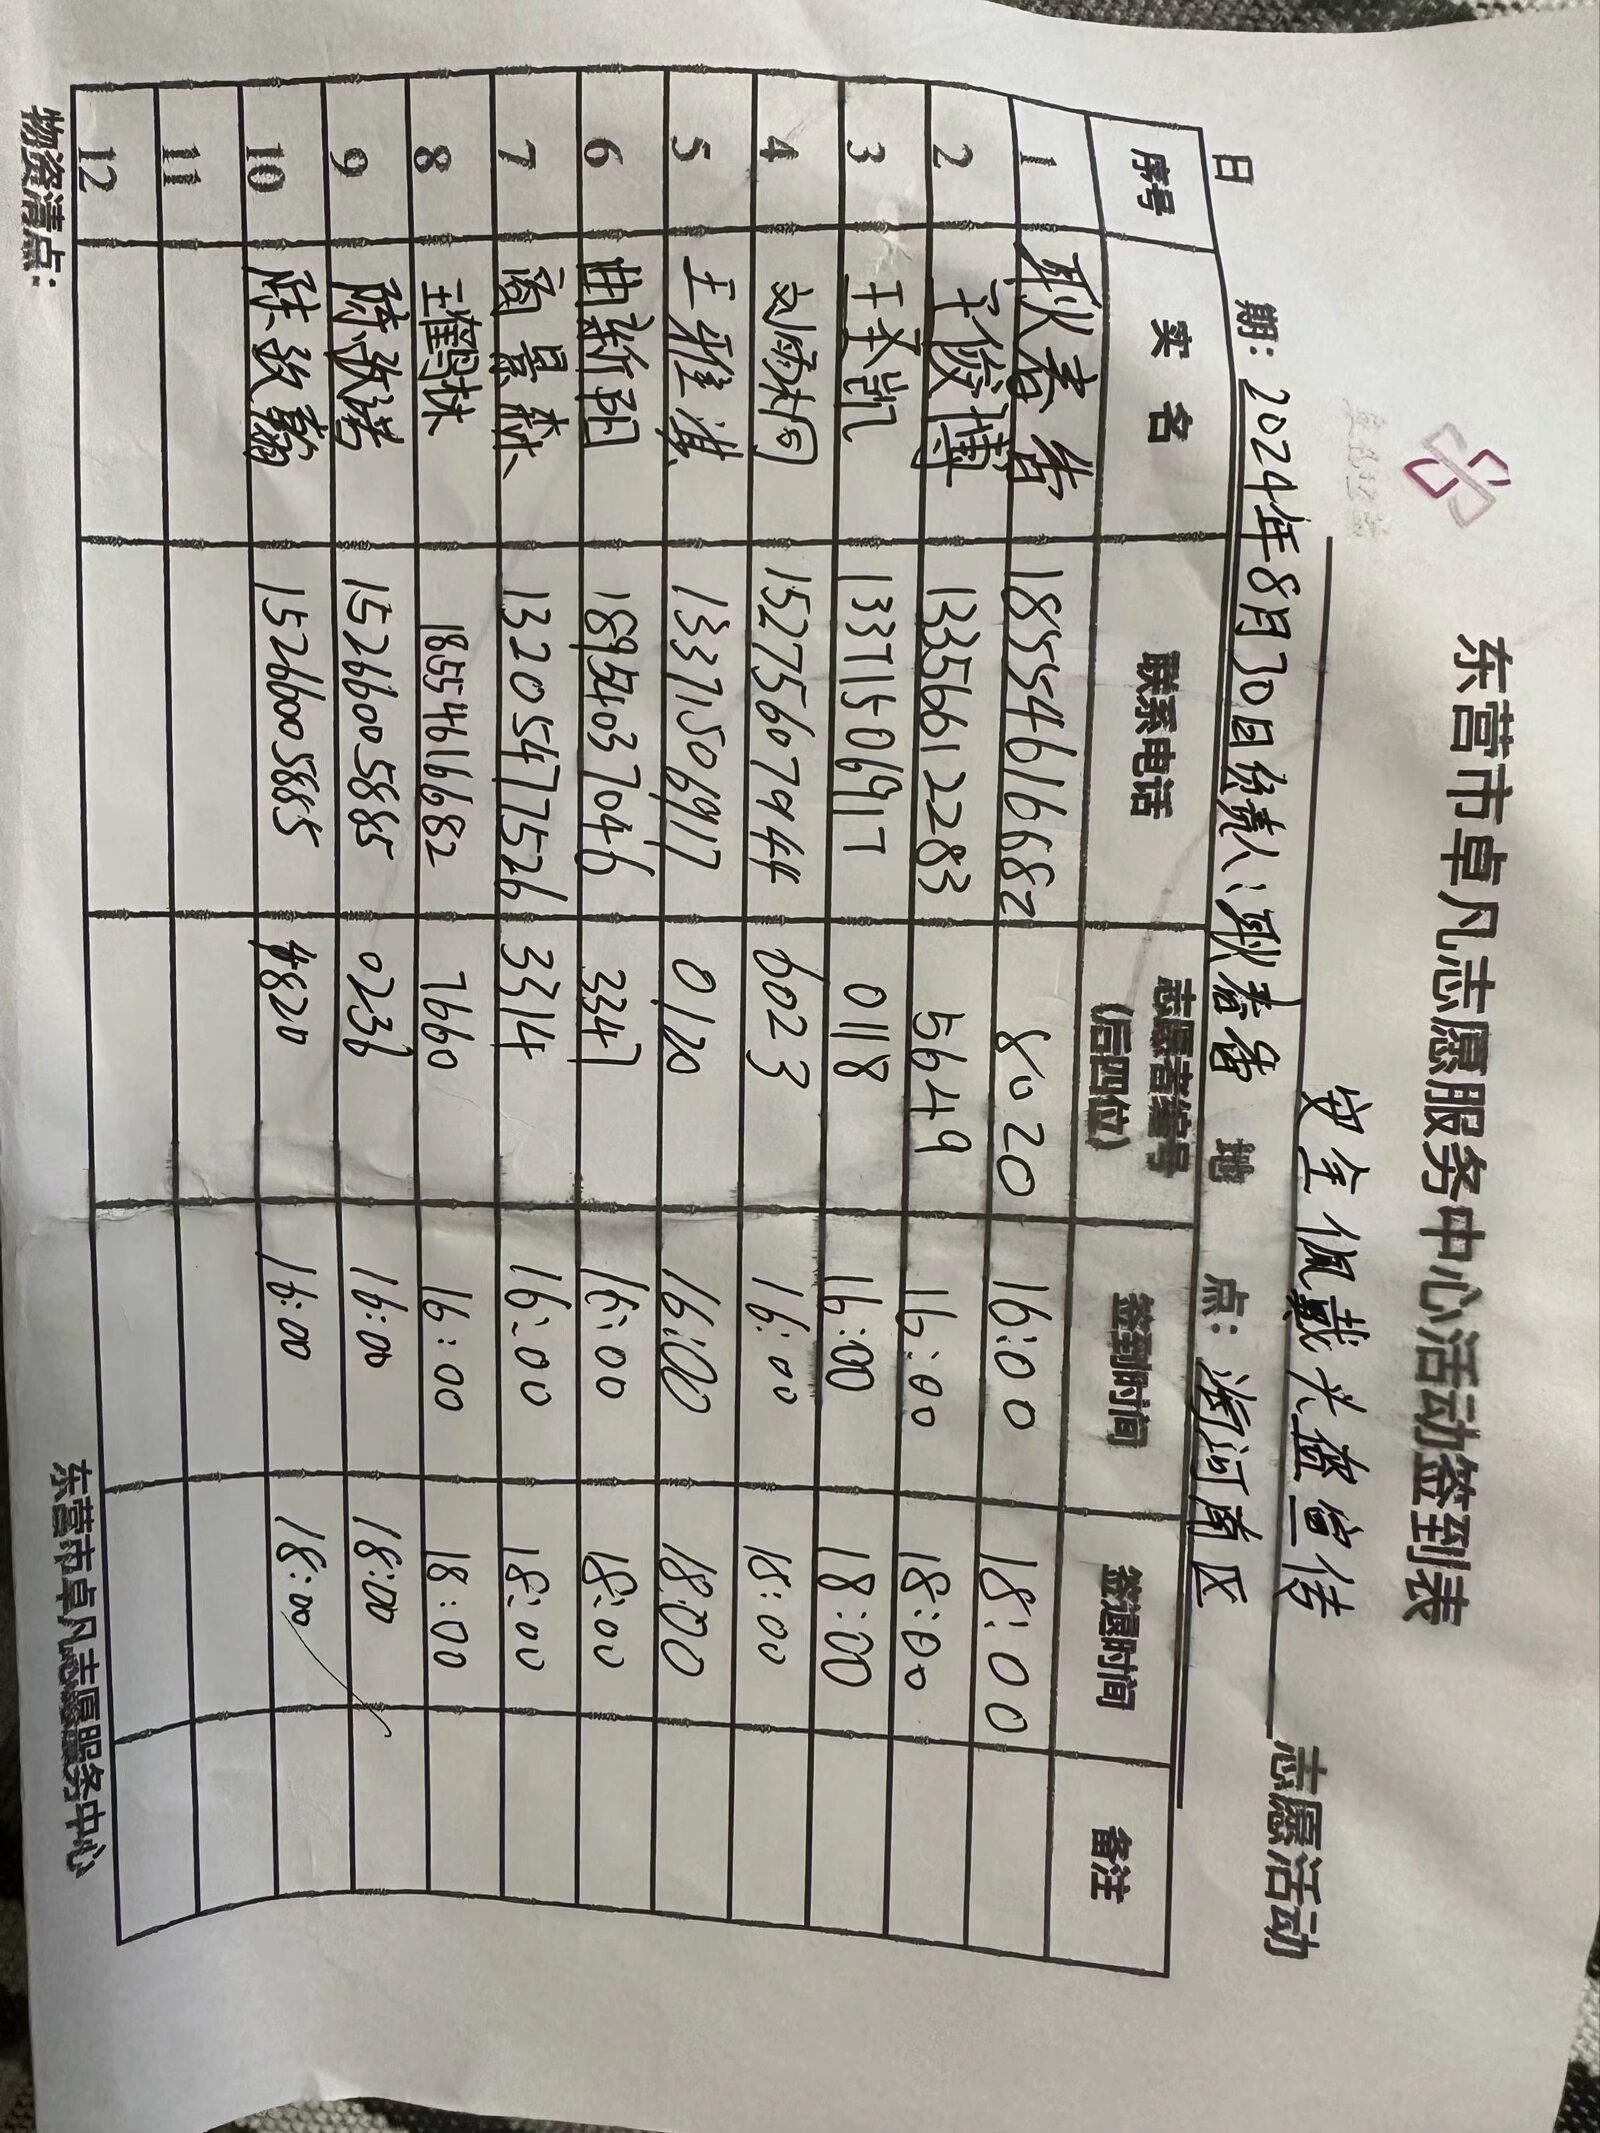 东营市卓凡志愿服务中心活动签到表
安全佩戴头盔宣传 志愿活动
日 期：2024年8月30日 负责人：耿春 地 点：河南区
序号 实 名 联系电话 志愿者编号（后四位） 签到时间 签退时间 备注
1 耿春 18554616682 8020 16:00 18:00
2 王俊博 13356612283 5649 16:00 18:00
3 王圣凯 13371506917 0118 16:00 18:00
4 刘 15275607944 6023 16:00 18:00
5 王雅淇 13371506917 0120 16:00 18:00
6 曲新阳 18954037046 3347 16:00 18:00
7 阎景森 13205477526 3314 16:00 18:00
8 18554616682 7660 16:00 18:00
9 陈孜诺 15266005885 0236 16:00 18:00
10 陈孜翰 15266005885 4820 16:00 18:00
11
12
物资清点：
东营市卓凡志愿服务中心